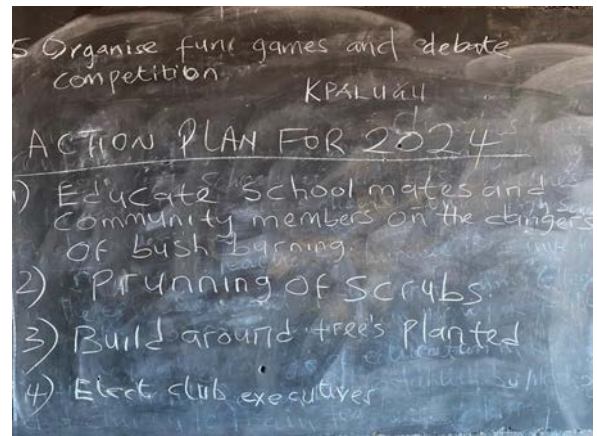 5 Organise fun games and debate
competition
KPALUGU
ACTION PLAN FOR 2024
1) Educate School mates and
community members on the dangers
of bush burning.
2) Prunning of scrubs.
3) Build around tree's planted
4) Elect club executives